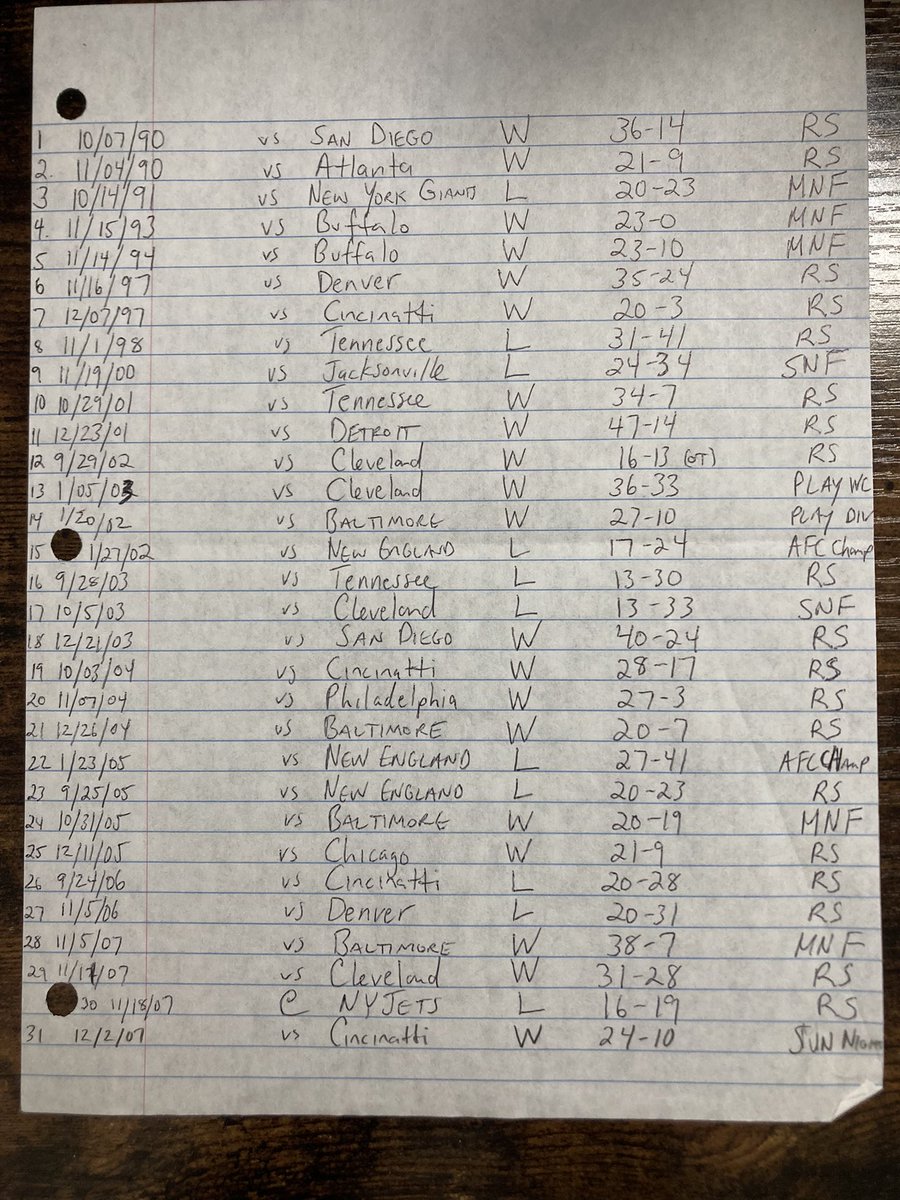 1 10/07/90 vs SAN DIEGO W 36-14 RS
2. 11/04/90 vs Atlanta W 21-9 RS
3 10/14/91 vs NEW YORK GIANTS L 20-23 MNF
4. 11/15/93 vs Buffalo W 23-0 MNF
5 11/14/94 vs Buffalo W 23-10 MNF
6 11/16/97 vs Denver W 35-24 RS
7 12/07/97 vs Cincinatti W 20-3 RS
8 11/1/98 vs Tennessee L 31-41 RS
9 11/19/00 vs Jacksonville L 24-34 SNF
10 10/29/01 vs Tennessee W 34-7 RS
11 12/23/01 vs DETROIT W 47-14 RS
12 9/29/02 vs Cleveland W 16-13 (OT) RS
13 1/05/03 vs Cleveland W 36-33 PLAY WC
14 1/20/02 vs BALTIMORE W 27-10 PLAY DIV
15 1/27/02 vs NEW ENGLAND L 17-24 AFC Champ
16 9/28/03 vs Tennessee L 13-30 RS
17 10/5/03 vs Cleveland L 13-33 SNF
18 12/21/03 vs SAN DIEGO W 40-24 RS
19 10/03/04 vs Cincinatti W 28-17 RS
20 11/07/04 vs Philadelphia W 27-3 RS
21 12/26/04 vs BALTIMORE W 20-7 RS
22 1/23/05 vs NEW ENGLAND L 27-41 AFC CHAmp
23 9/25/05 vs NEW ENGLAND L 20-23 RS
24 10/31/05 vs BALTIMORE W 20-19 MNF
25 12/11/05 vs Chicago W 21-9 RS
26 9/24/06 vs Cincinatti L 20-28 RS
27 11/5/06 vs Denver L 20-31 RS
28 11/5/07 vs BALTIMORE W 38-7 MNF
29 11/11/07 vs Cleveland W 31-28 RS
30 11/18/07 @ NY JETS L 16-19 RS
31 12/2/07 vs Cincinatti W 24-10 SUN